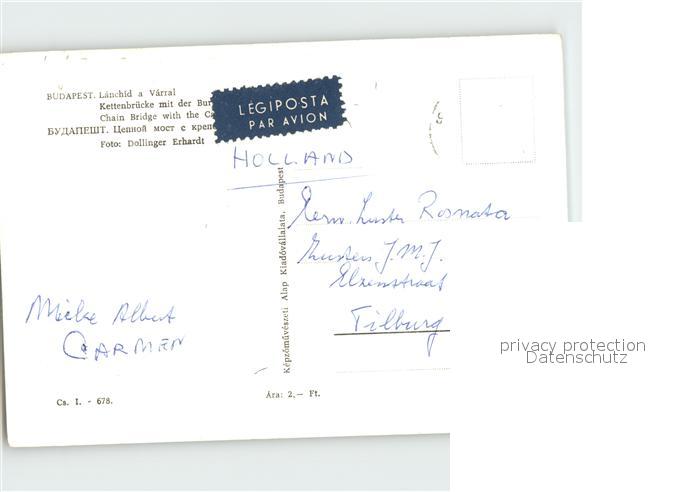 BUDAPEST. Lánchíd a Várral
Kettenbrücke mit der Bur
Chain Bridge with the Ca
БУДАПЕШТ. Цепной мост с креп
Foto: Dollinger Erhardt
LÉGIPOSTA
PAR AVION
HOLLAND
Eerw. Zuster Rosnata
Zusters J.M.J.
Elzenstraat
Tilburg
Képzőművészeti Alap Kiadóvállalata, Budapest
Mieke Albert
CARMEN
Cs. I. - 678.
Ára: 2,— Ft.
privacy protection
Datenschutz